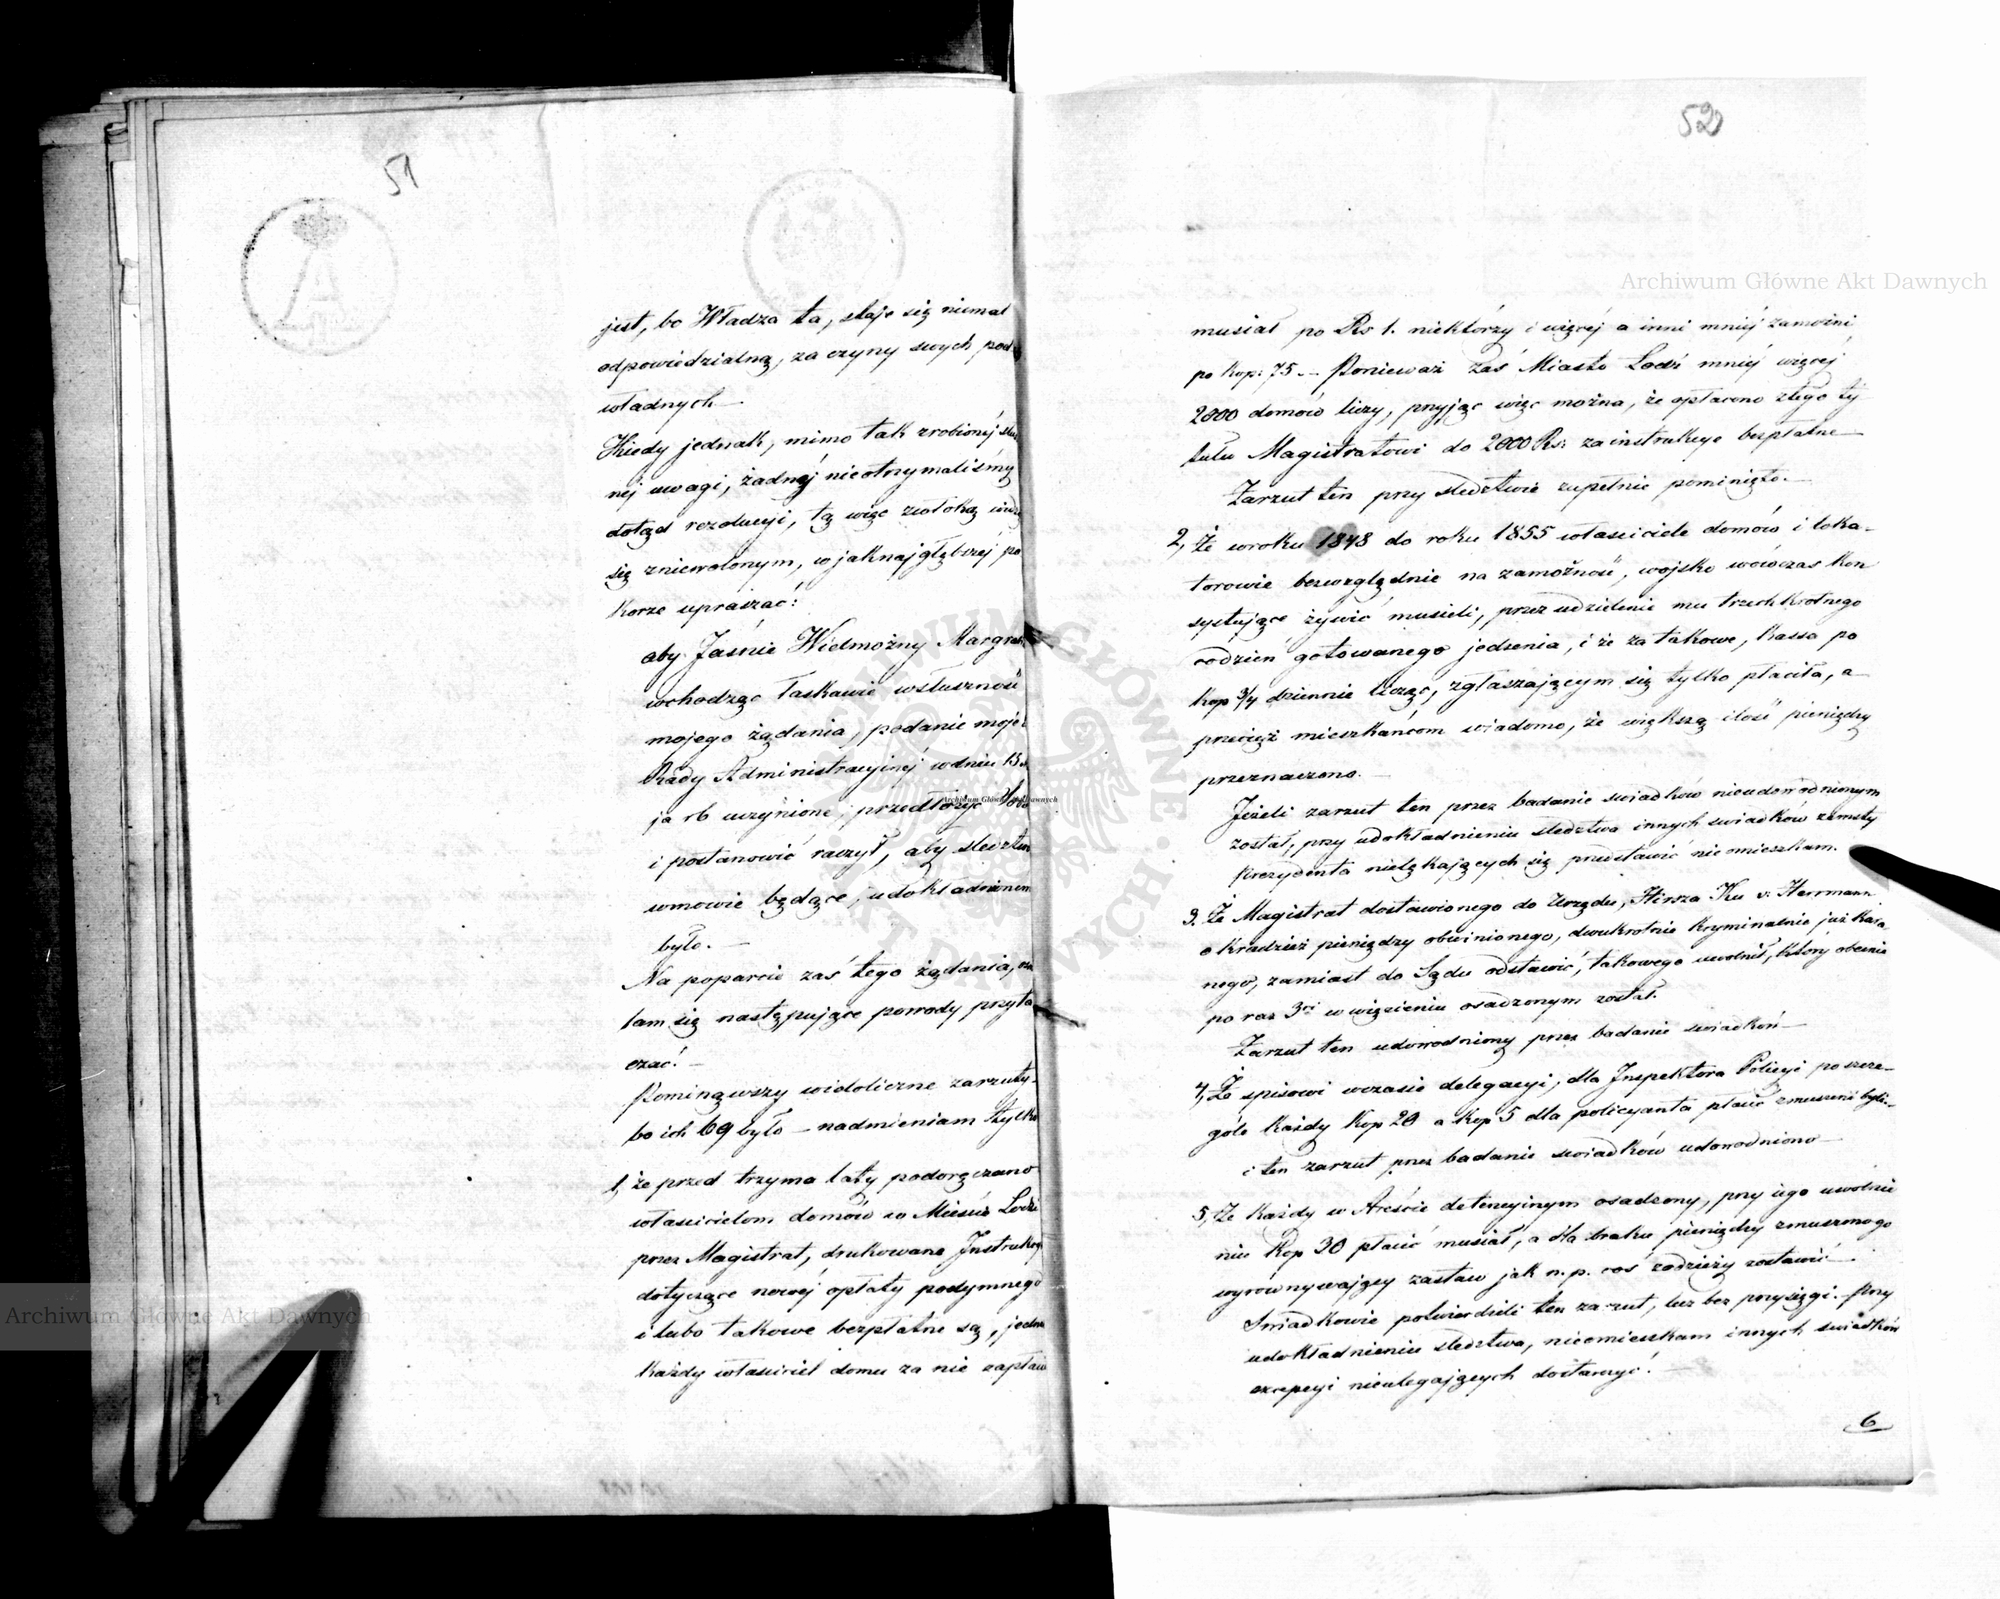 51
jest, bo Władza ta, staje się niemal
odpowiedzialną, za czyny swych pod
władnych —
Kiedy jednak, mimo tak zrobionéj słusz
néj uwagi, żadnéj nieotrzymaliśmy
dotąd rezolucyi, tą więc zwłoką widzę
się zniewolonym, w jaknajgłębszéj po
korze upraszać:
aby Jaśnie Wielmożny Margrabia
wchodząc łaskawie w słuszność
mojego żądania, podanie moje
Rady Administracyjnéj w dniu 15
ja rb uczynione, przedłożyć
i postanowić raczył, aby śledztwo
w mowie będące, udokładnionem
było. —
Na poparcie zaś tego żądania,
tam się następujące powody przyta
czać: —
Pominąwszy widoliczne zarzuty
bo ich 69 było — nadmieniam tylko
1, że przed trzyma laty podoręczano
właścicielom domów w Mieście Łodzi
przez Magistrat, drukowane Instrukcye
dotyczące nowéj opłaty podymnego
i lubo takowe bezpłatne są, jednak
każdy właściciel domu za nie zapłacić
52
musiał po Rs 1. niektórzy i więcéj a inni mniéj zamożni
po kop: 75 — Ponieważ zaś Miasto Łodź mniéj więcéj
2000 domów liczy, przyjąc więc można, że opłacono z tego ty
tułu Magistratowi do 2000 Rs: za instrukcye bezpłatne —
Zarzut ten przy śledztwie zupełnie pominięto. —
2, Że w roku 1848 do roku 1855 właściciele domów i loka-
torowie bezwzględnie na zamożność, wojsko wówczas kon
systujące żywić musieli, przez udzielenie mu trzechkrotnego
codzień gotowanego jedzenia, i że za takowe, Kassa po
kop 3/4 dziennie licząc, zgłaszającym się tylko płaciła, a
przecięż mieszkańcom wiadomo, że większą ilość pieniędzy
przeznaczono. —
Jeżeli zarzut ten przez badanie świadków nieudowodnionym
został, przy udokładnieniu śledztwa innych świadków zemsty
Prezydenta nielękających się przedstawić nieomieszkam.
3. Że Magistrat dostawionego do Urzędu, Hirsza Ku v: Herrmann
o kradzież pieniędzy obwinionego, dwukrotnie kryminalnie już kara
nego, zamiast do Sądu odstawić, takowego uwolnił, który obecnie
po raz 3ci w więzieniu osadzonym został.
Zarzut ten udowodniony przez badanie świadków —
4, Że spisowi wczasie delegacyi, dla Inspektora Policyi poszcze-
góle każdy kop 20 a kop 5 dla policyanta płacić zmuszeni byli —
i ten zarzut przez badanie świadków udowodniono —
5, Że każdy w Areście detencyjnym osadzony, przy jego uwolnie
niu kop 30 płacić musiał, a dla braku pieniędzy zmuszonego
wyrównywający zastaw jak n. p. coś zodzieży zostawić —
Świadkowie potwierdzili ten zarzut, lecz bez przysięgi. — Przy
udokładnieniu śledztwa, nieomieszkam innych świadków
excepcyi nieulegających dostarczyć. —
6
Archiwum Główne Akt Dawnych
Archiwum Główne Akt Dawnych
Archiwum Główne Akt Dawnych
ARCHIWUM GŁÓWNE AKT DAWNYCH